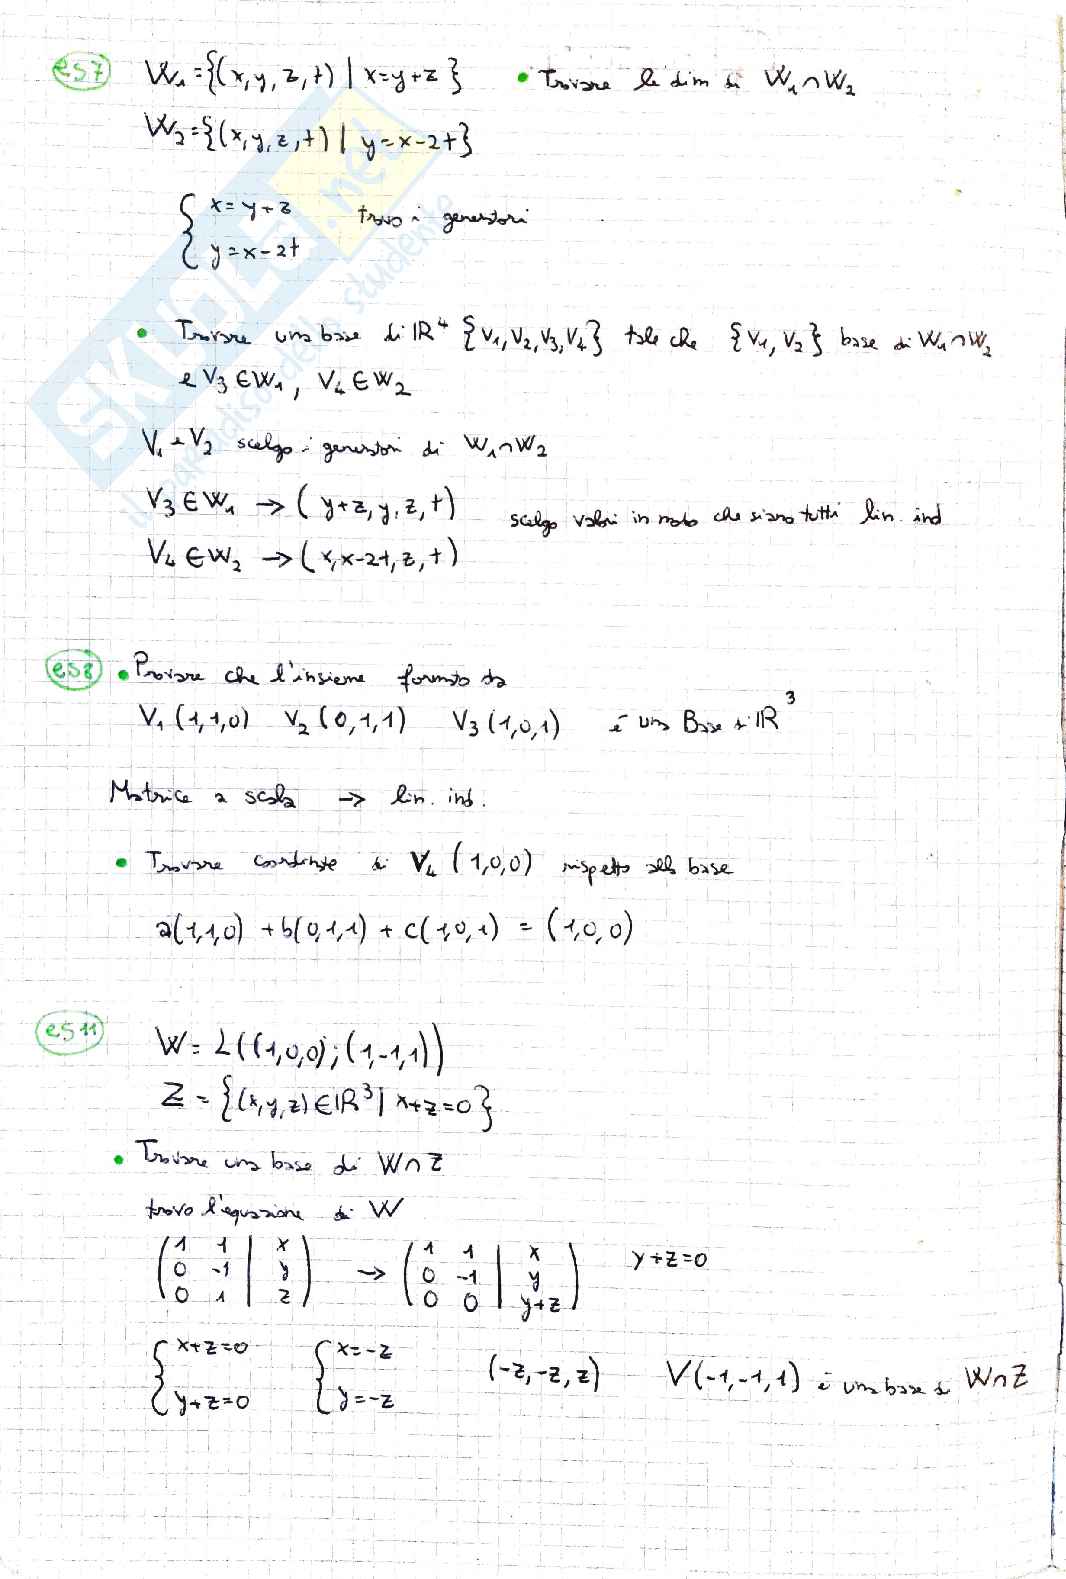 es7 W₁={(x,y,z,t) | x=y+z} • Trovare la dim di W₁∩W₂
W₂={(x,y,z,t) | y=x-2t}
{ x=y+z trovo i generatori
y=x-2t
• Trovare una base di ℝ⁴ {V₁,V₂,V₃,V₄} tale che {V₁,V₂} base di W₁∩W₂
e V₃∈W₁, V₄∈W₂
V₁ e V₂ scelgo i generatori di W₁∩W₂
V₃∈W₁ → (y+z,y,z,t) scelgo valori in modo che siano tutti lin. ind
V₄∈W₂ → (x,x-2t,z,t)
es8 • Provare che l'insieme formato da
V₁(1,1,0) V₂(0,1,1) V₃(1,0,1) è una Base di ℝ³
Matrice a scala → lin. ind.
• Trovare coordinate di V₄(1,0,0) rispetto alla base
a(1,1,0) + b(0,1,1) + c(1,0,1) = (1,0,0)
es11 W= L((1,0,0);(1,-1,1))
Z = {(x,y,z)∈ℝ³| x+z=0}
• Trovare una base di W∩Z
trovo l'equazione di W
(1 1 | x) → (1 1 | x) y+z=0
(0 -1 | y) (0 -1 | y)
(0 1 | z) (0 0 | y+z)
{ x+z=0 { x=-z (-z,-z,z) V(-1,-1,1) è una base di W∩Z
y+z=0 y=-z
SKUOLA.net
il paradiso dello studente